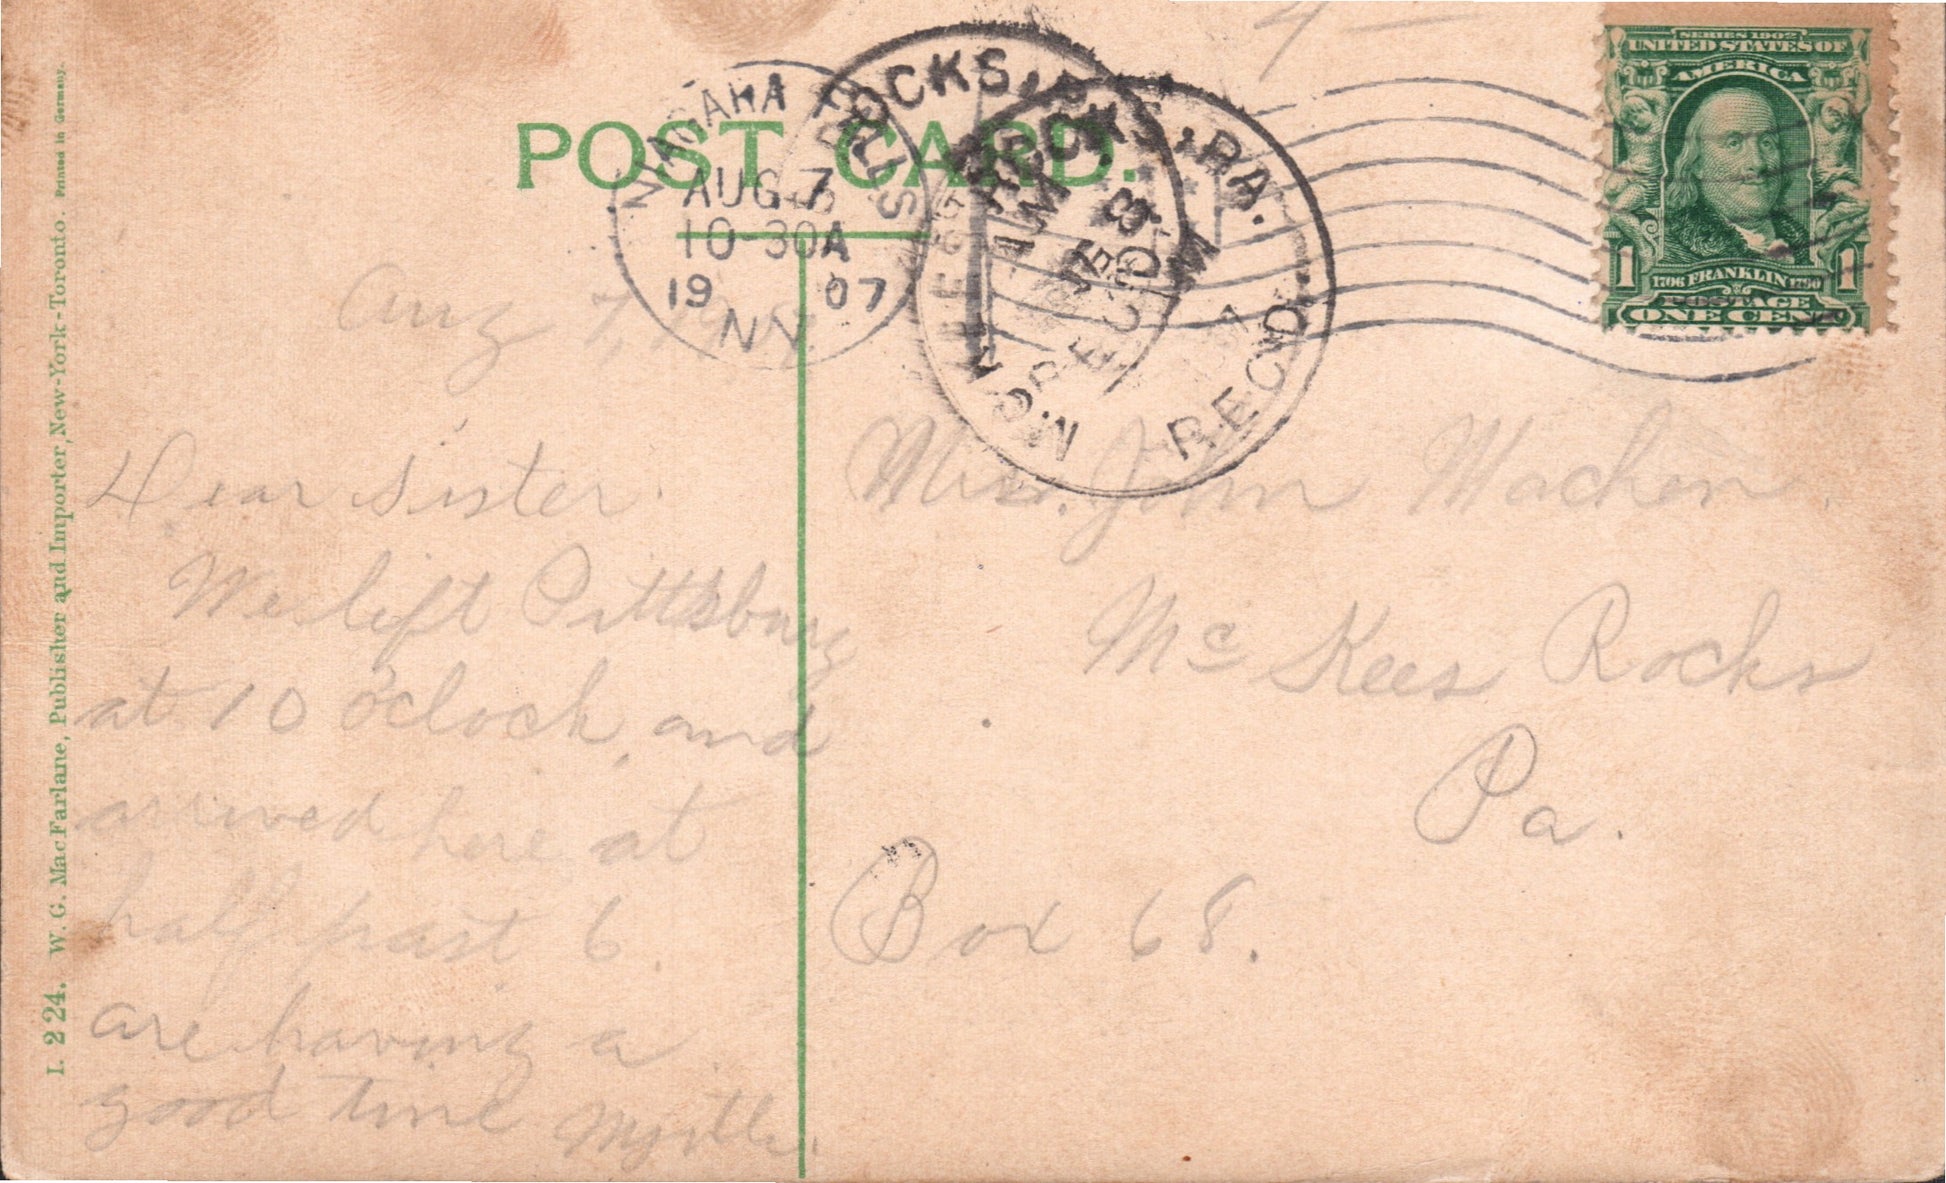 POST CARD.
NIAGARA FALLS
AUG 7
10-30A
19 07
N.Y.
ROCKS, PA.
REC'D.
SERIES 1902
UNITED STATES OF
AMERICA
1 1706 FRANKLIN 1790 1
POSTAGE
ONE CENT
I. 224. W. G. MacFarlane, Publisher and Importer, New-York-Toronto. Printed in Germany.
Aug 7, 1907.
Dear Sister.
We left Pittsburg
at 10 o'clock, and
arrived here at
half past 6.
are having a
good time Myrtle.
Mrs. John Machen
Mc Kees Rocks
Pa.
Box 68.